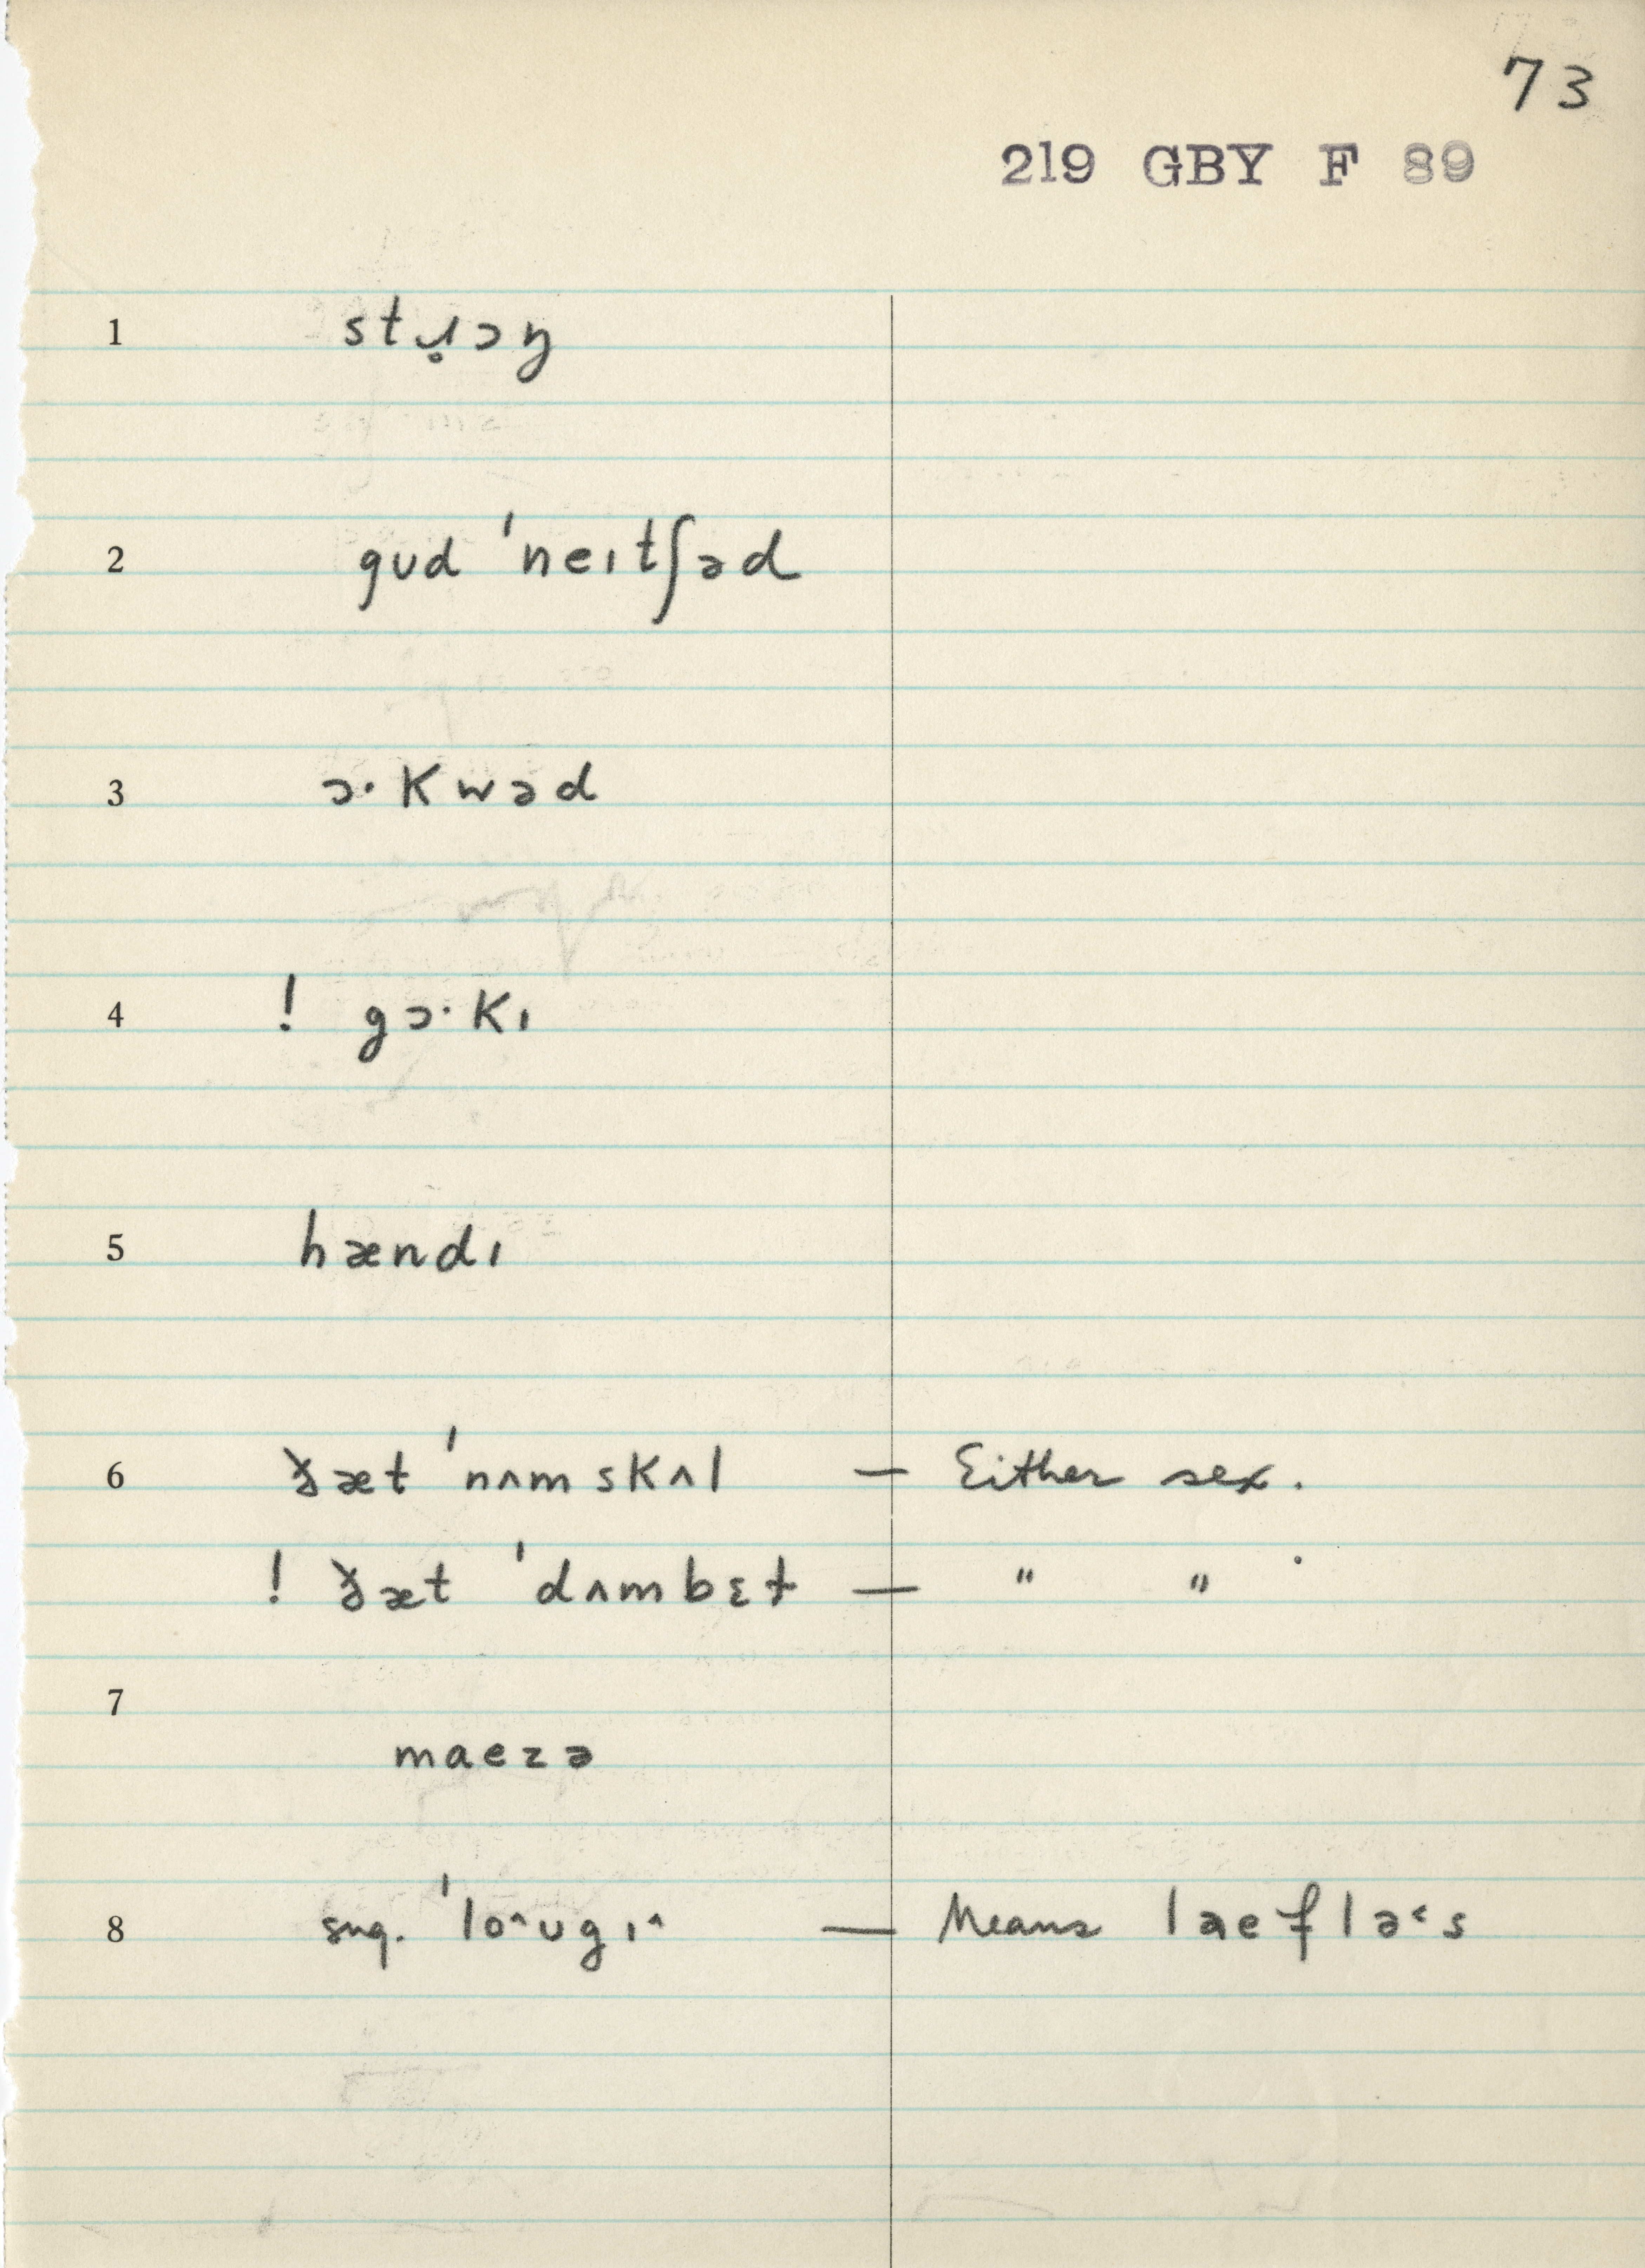 73
219 GBY F 89
1 stɹ̥ɔŋ
2 gʊd ˈneɪtʃəd
3 ɔ·kwəd
4 ! gɔ·kɪ
5 hændɪ
6 ðæt ˈnʌmskʌl — Either sex.
! ðæt ˈdʌmbɛt — " " .
7
maezə
8 sug. ˈlo^ʊgɪ^ — Means laeflə˂s